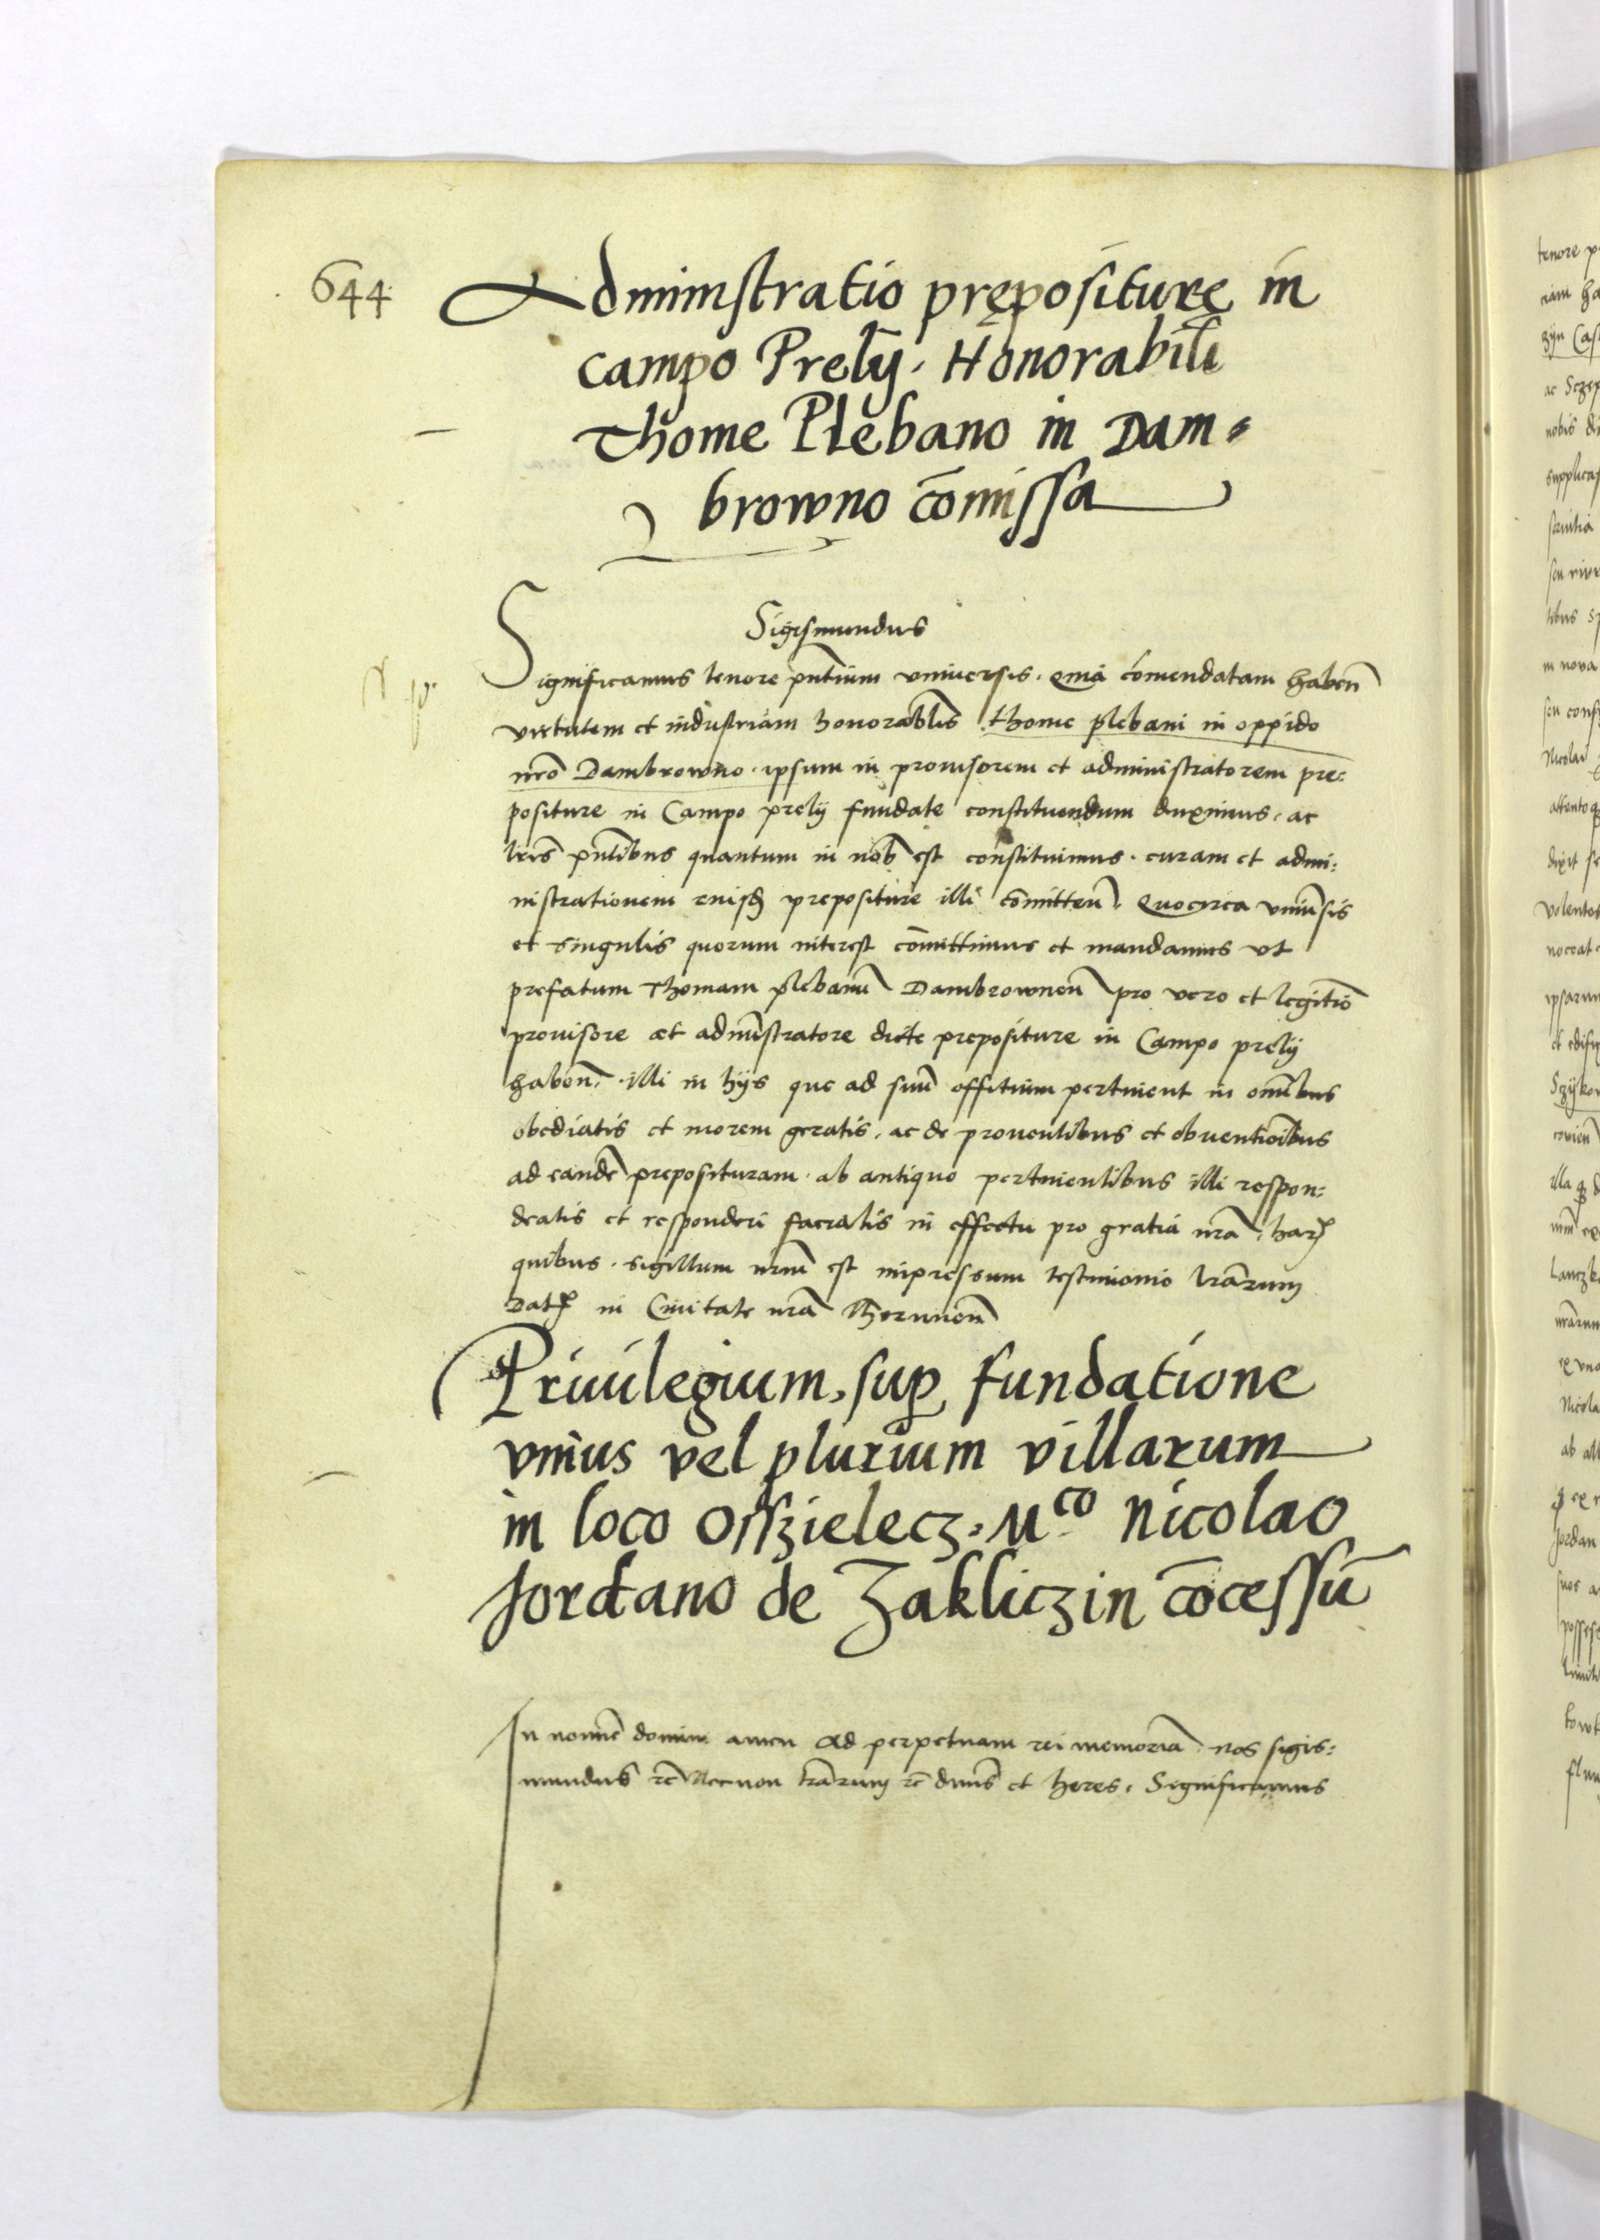 644
Administratio pręposituręin
campo Prelij. Honorabili
Thome Plebano in Dam=
browno cōmissa
Sigismundus
Significamus tenore pn̄tium vniuersis. Quia cōmendatam haben̄
virtutem et industriam honorabilis Thome plebani in oppido
nr̄o Dambrowno. ipsum in prouisorem et administratorem pre:
positure in Campo prelij fundate constituendum duximus. ac
lr̄is pn̄tibus quantum in nob̄ est constituimus. curam et admi:
nistrationem eiusd̄ prepositure illi cōmitten̄. Quocirca vniūsis
et singulis quorum interest cōmittimus et mandamus vt
prefatum Thomam plebanū Dambrownen̄ pro vero et legitīo
prouisore et admīstratore dicte prepositure in Campo prelij
haben̄. illi in hijs que ad suū offitium pertinent in oīnibus
obediatis et morem geratis. ac de prouentibus et obuentiōibus
ad eandē preposituram. ab antiquo pertinentibus illi respon:
deatis et responderi faciatis in effectu pro gratia nr̄a. harꝝ
quibus. sigillum nr̄um est impressum testimonio lr̄arum
Datꝭ in Ciuitate nr̄a Thorunen̄
Priuilegium, suꝑ fundatione
vnius vel plurium villarum
in loco Osszielecz. Mco Nicolao
Jordano de Zakliczin cōcessū
In nomīe domini amen Ad perpetuam rei memoriā. nos sigis:
mundus rc̄ Necnon trr̄arum rc̄ dn̄s et heres. Significamus